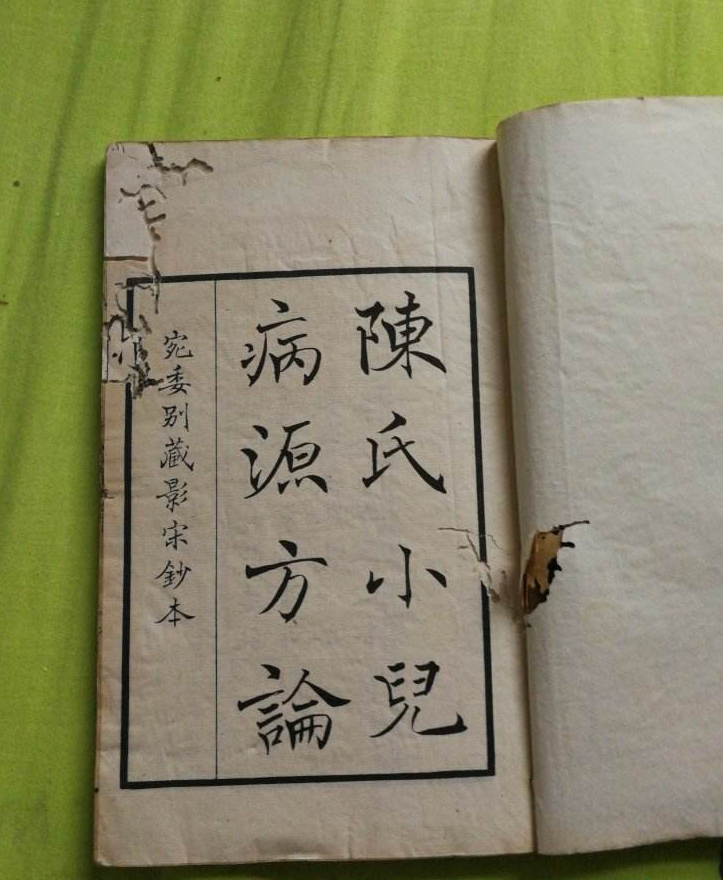 陳氏小兒
病源方論
宛委別藏影宋鈔本